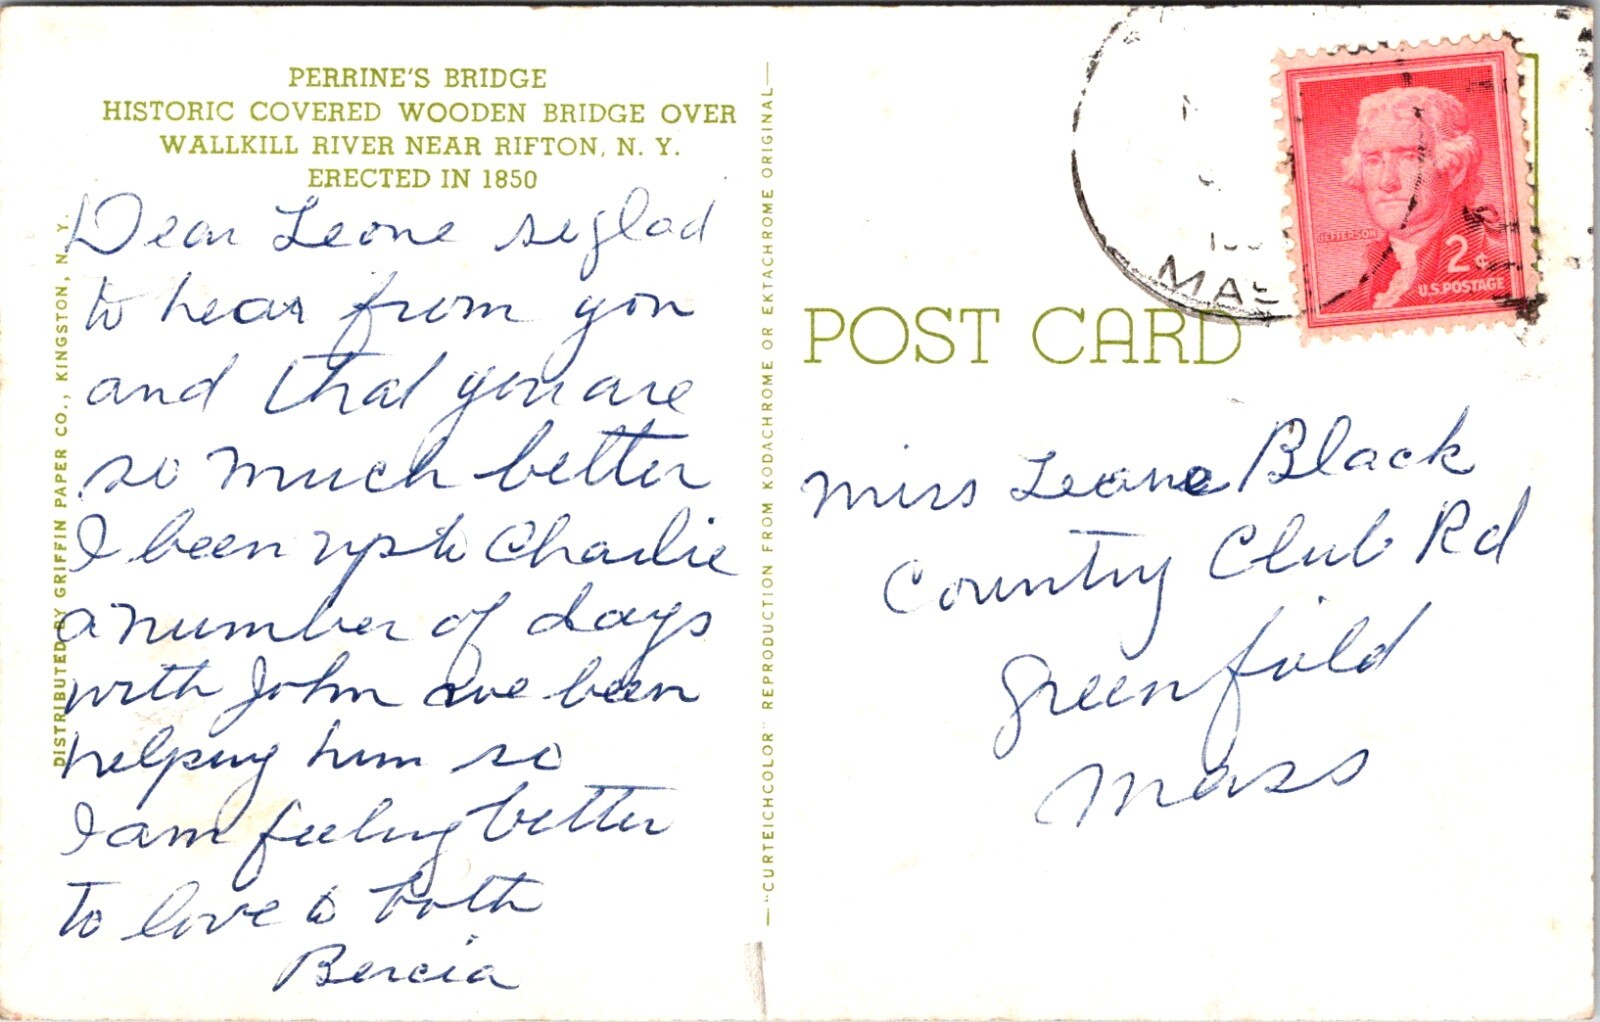 PERRINE'S BRIDGE
HISTORIC COVERED WOODEN BRIDGE OVER
WALLKILL RIVER NEAR RIFTON, N. Y.
ERECTED IN 1850
Dear Leone so glad
to hear from you
and that you are
so much better
I been up to Charlie
a number of days
with John we been
helping him so
I am feeling better
to love to both
Bercia
DISTRIBUTED BY GRIFFIN PAPER CO., KINGSTON, N. Y.
"CURTEICHCOLOR" REPRODUCTION FROM KODACHROME OR EKTACHROME ORIGINAL
MAS
JEFFERSON
2¢
U.S. POSTAGE
POST CARD
Miss Leone Black
Country Club Rd
Greenfield
Mass